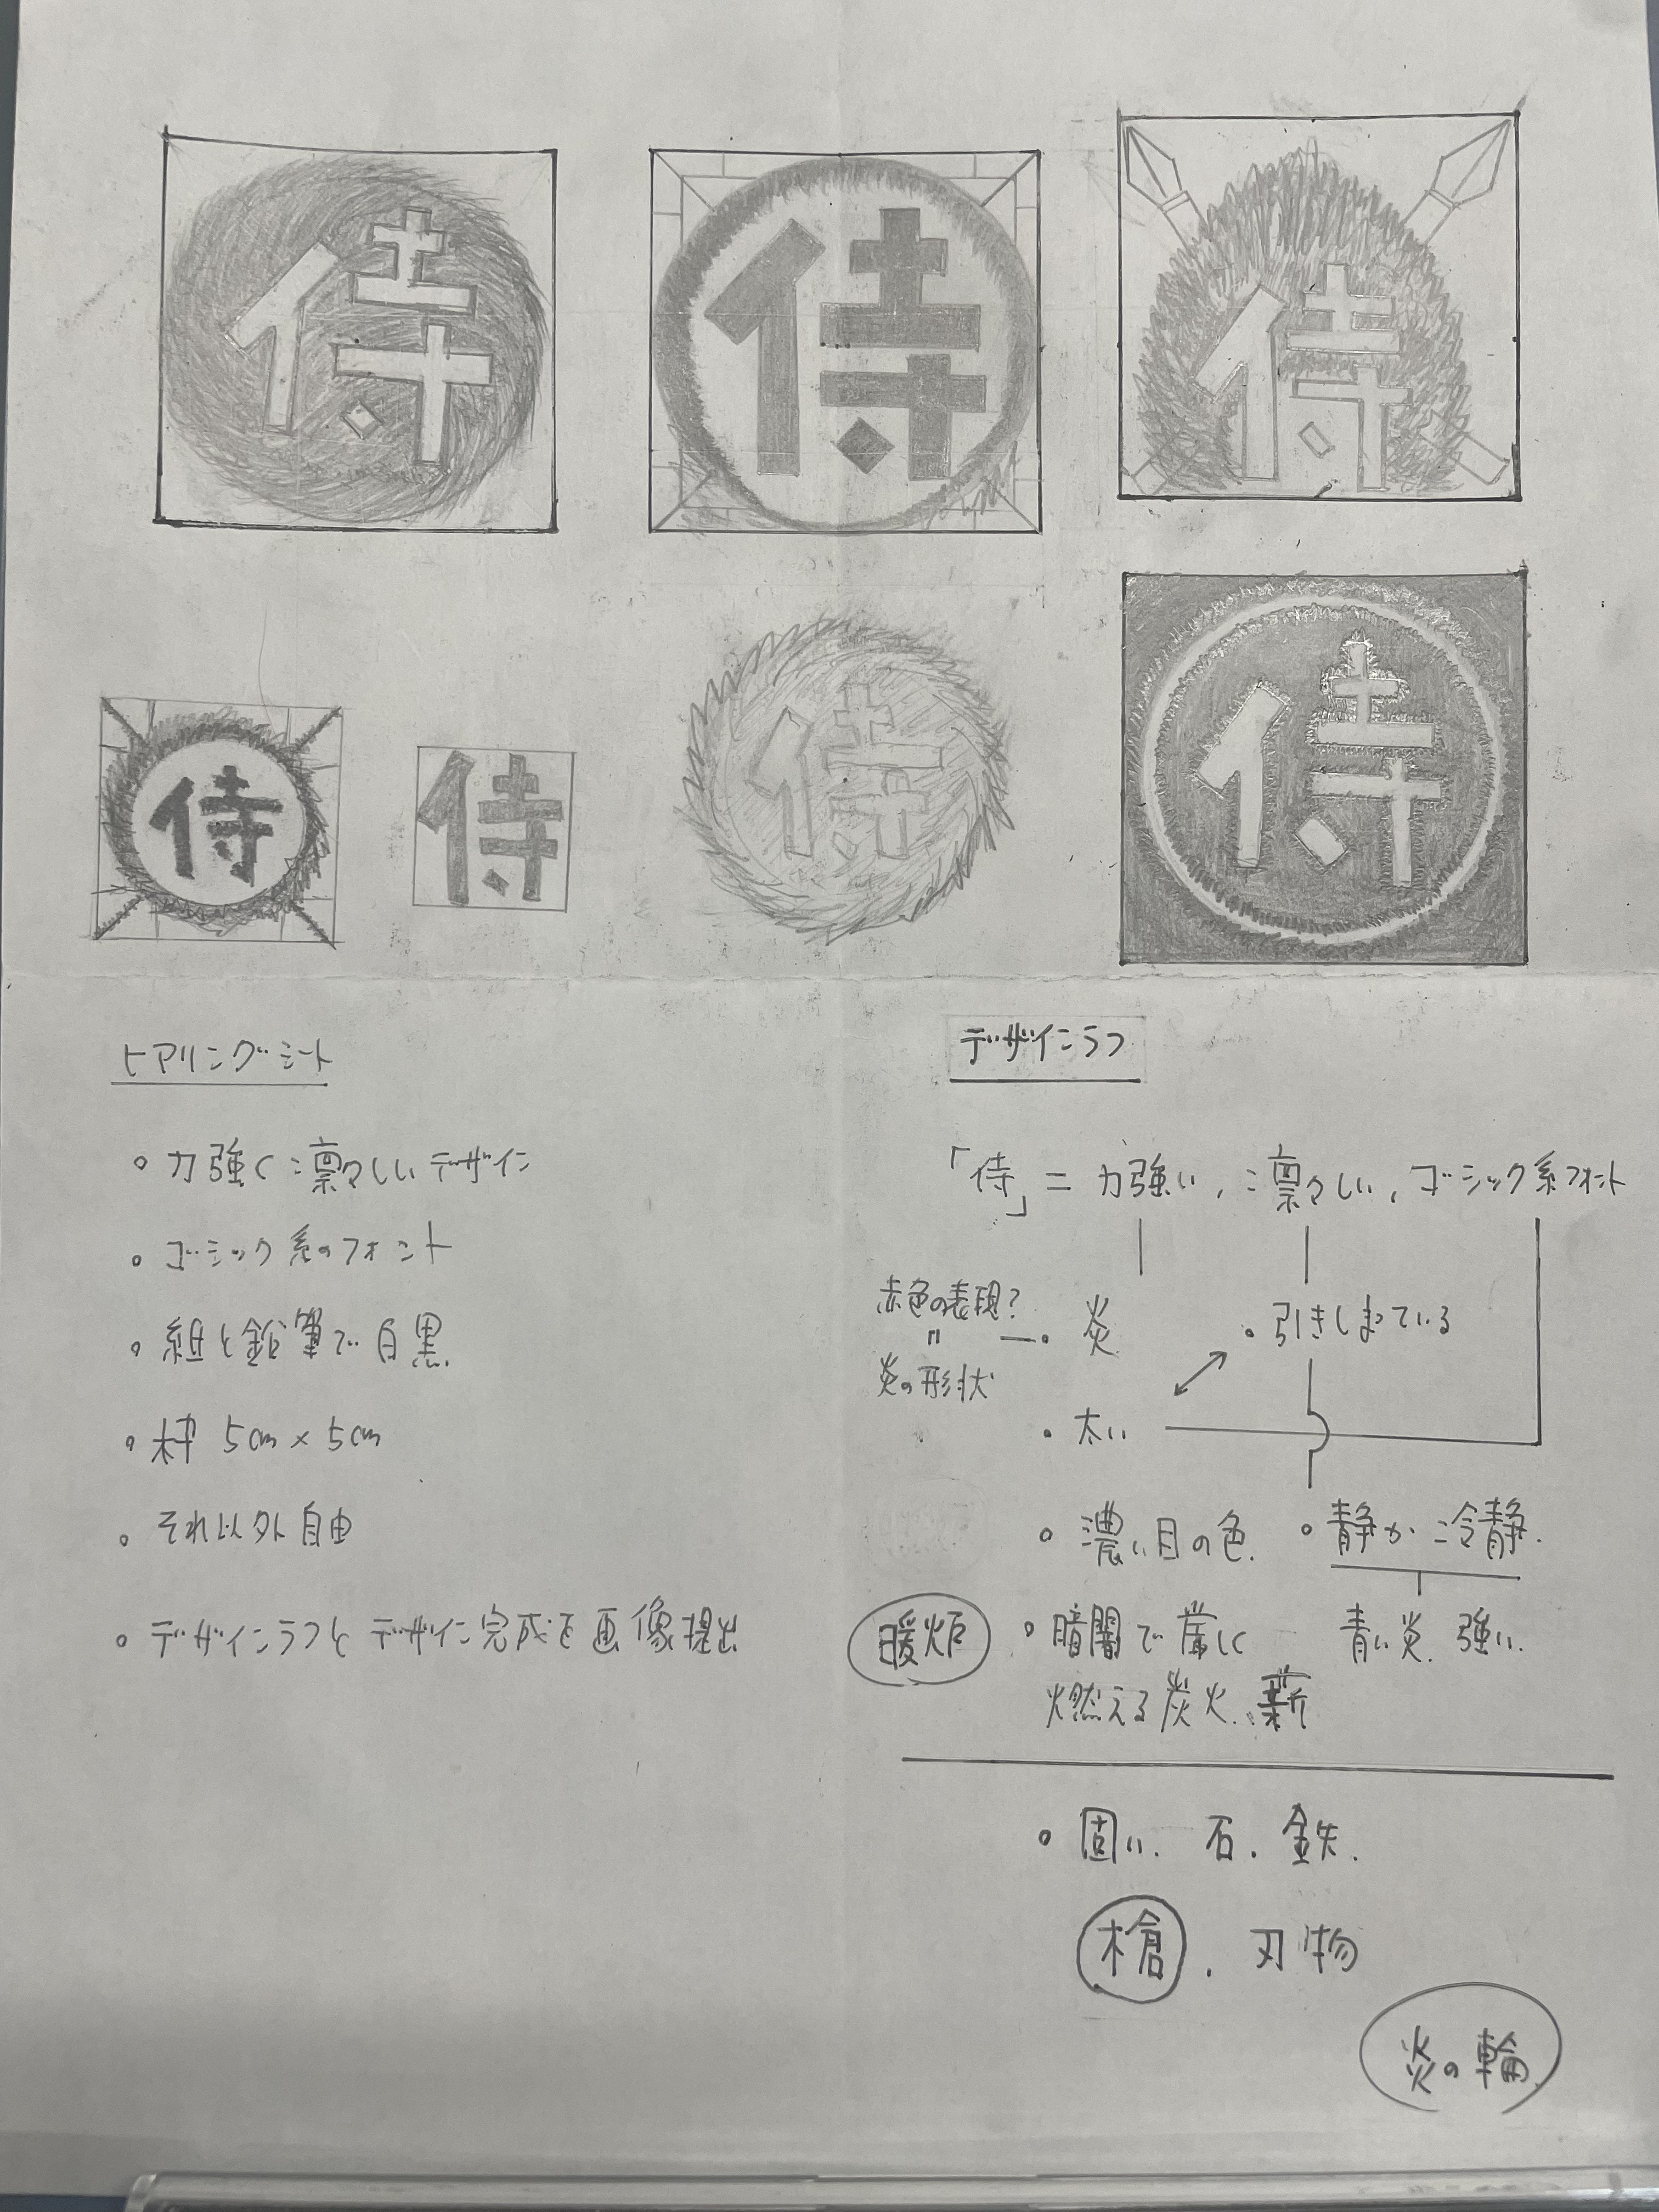 侍
侍
侍
侍
侍
侍
侍
ヒアリングシート
・力強く凛々しいデザイン
・ゴシック系のフォント
・紙と鉛筆で白黒
・枠 5cm × 5cm
・それ以外自由
・デザインラフとデザイン完成を画像提出
デザインラフ
「侍」＝力強い、凛々しい、ゴシック系フォント
赤色の表現？
〃
炎の形状
・炎
・引きしまっている
・太い
・濃い目の色
・静か 冷静
青い炎 強い
暖炉
・暗闇で
燃える炭火、薪
・固い. 石. 鉄.
槍. 刃物
炎の輪